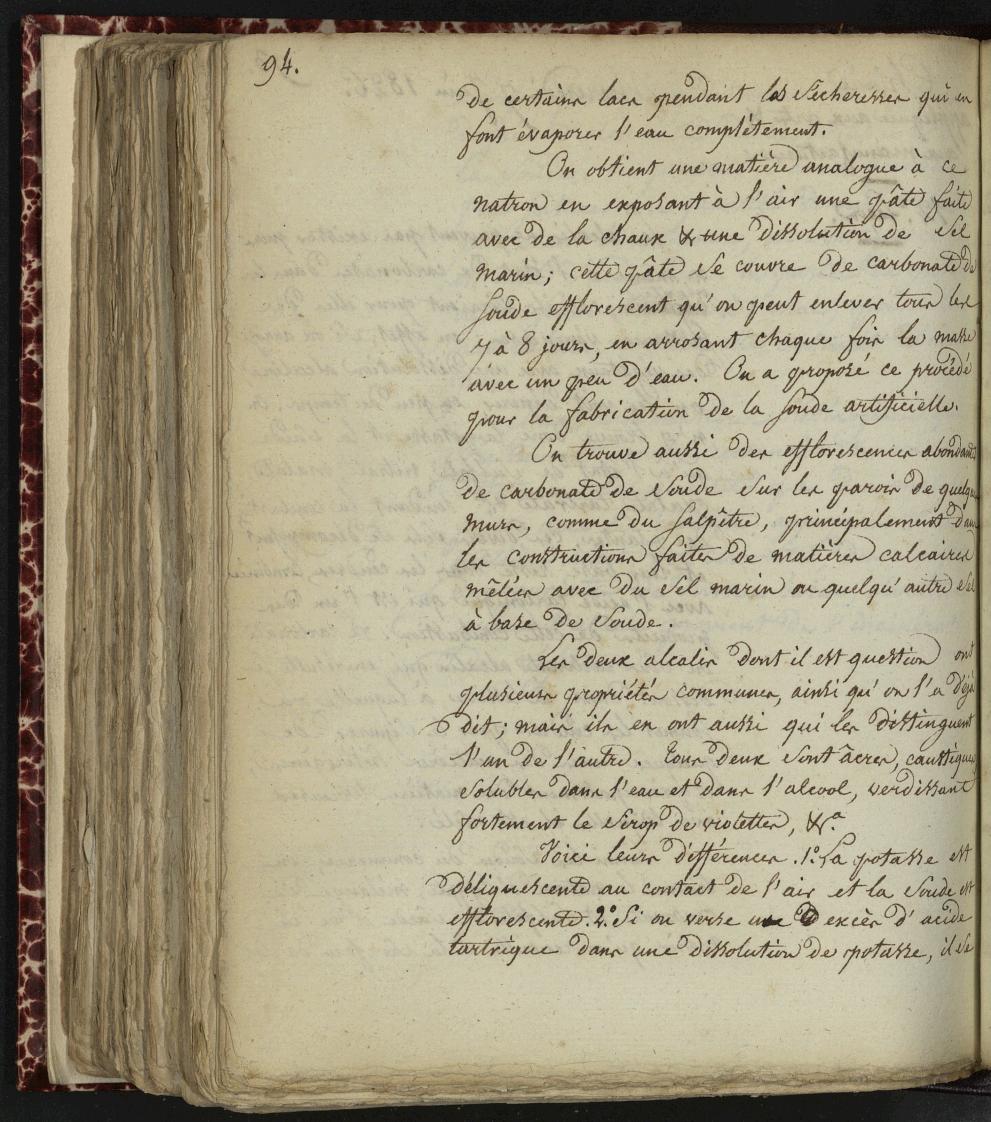 94.
de certains lacs pendant les sécheresses qui en
font évaporer l'eau complétement.
On obtient une matière analogue à ce
natron en exposant à l'air une pâte faite
avec de la chaux & une dissolution de sel
marin; cette pâte se couvre de carbonate de
soude efflorescent qu'on peut enlever tous les
7 à 8 jours, en arrosant chaque fois la masse
avec un peu d'eau. On a proposé ce procédé
pour la fabrication de la soude artificielle.
On trouve aussi des efflorescences abondantes
de carbonate de soude sur les parois de quelques
murs, comme du salpêtre, principalement dans
les constructions faites de matières calcaires
mêlées avec du sel marin ou quelqu'autre sel
à base de soude.
Les deux alcalis dont il est question ont
plusieurs propriétés communes, ainsi qu'on l'a déjà
dit; mais ils en ont aussi qui les distinguent
l'un de l'autre. Tous deux sont âcres, caustiques
solubles dans l'eau et dans l'alcool, verdissant
fortement le sirop de violettes, &a.
Voici leurs différences. 1º La potasse est
déliquescente au contact de l'air et la soude est
efflorescente. 2º Si on verse un excès d'acide
tartrique dans une dissolution de potasse, il se